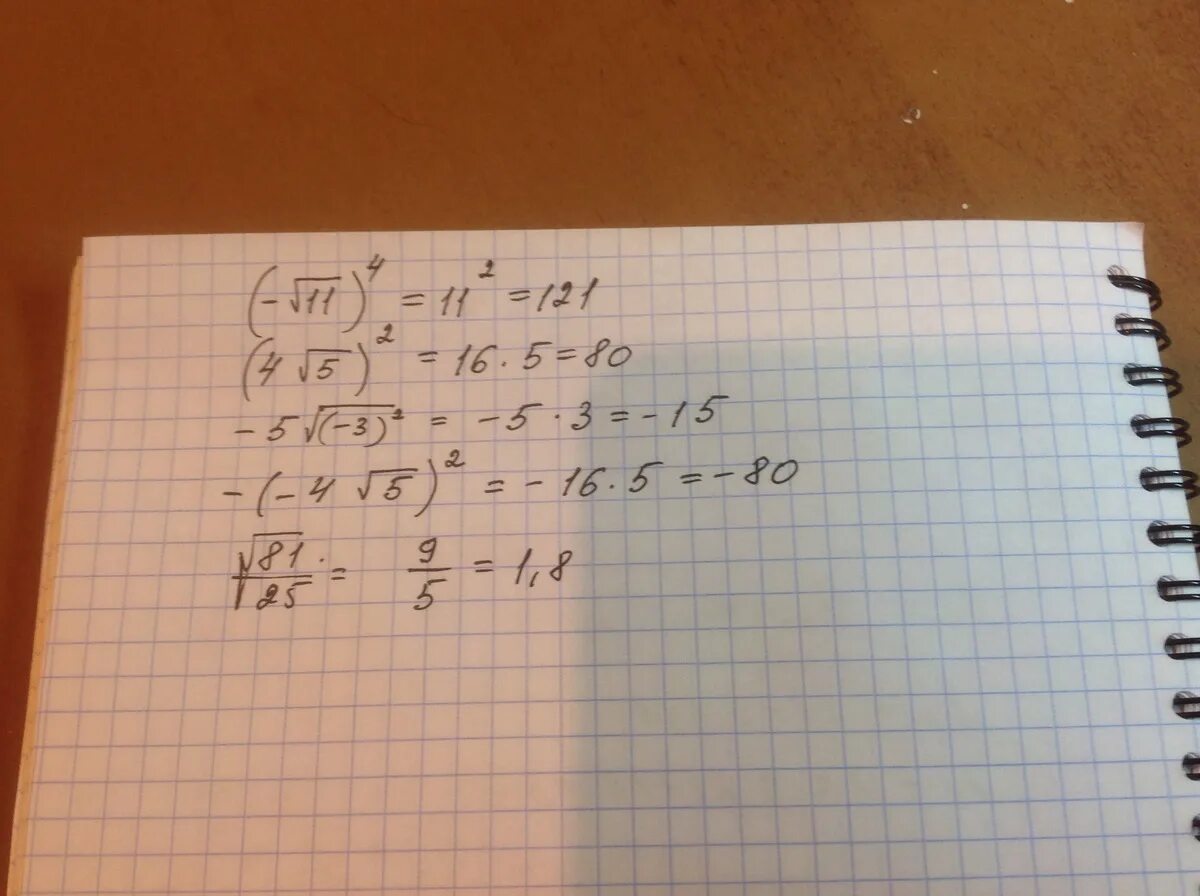 (-√11)⁴ = 11² = 121
(4√5)² = 16 · 5 = 80
-5√(-3)² = -5 · 3 = -15
-(-4√5)² = -16 · 5 = -80
√81/√25 = 9/5 = 1,8